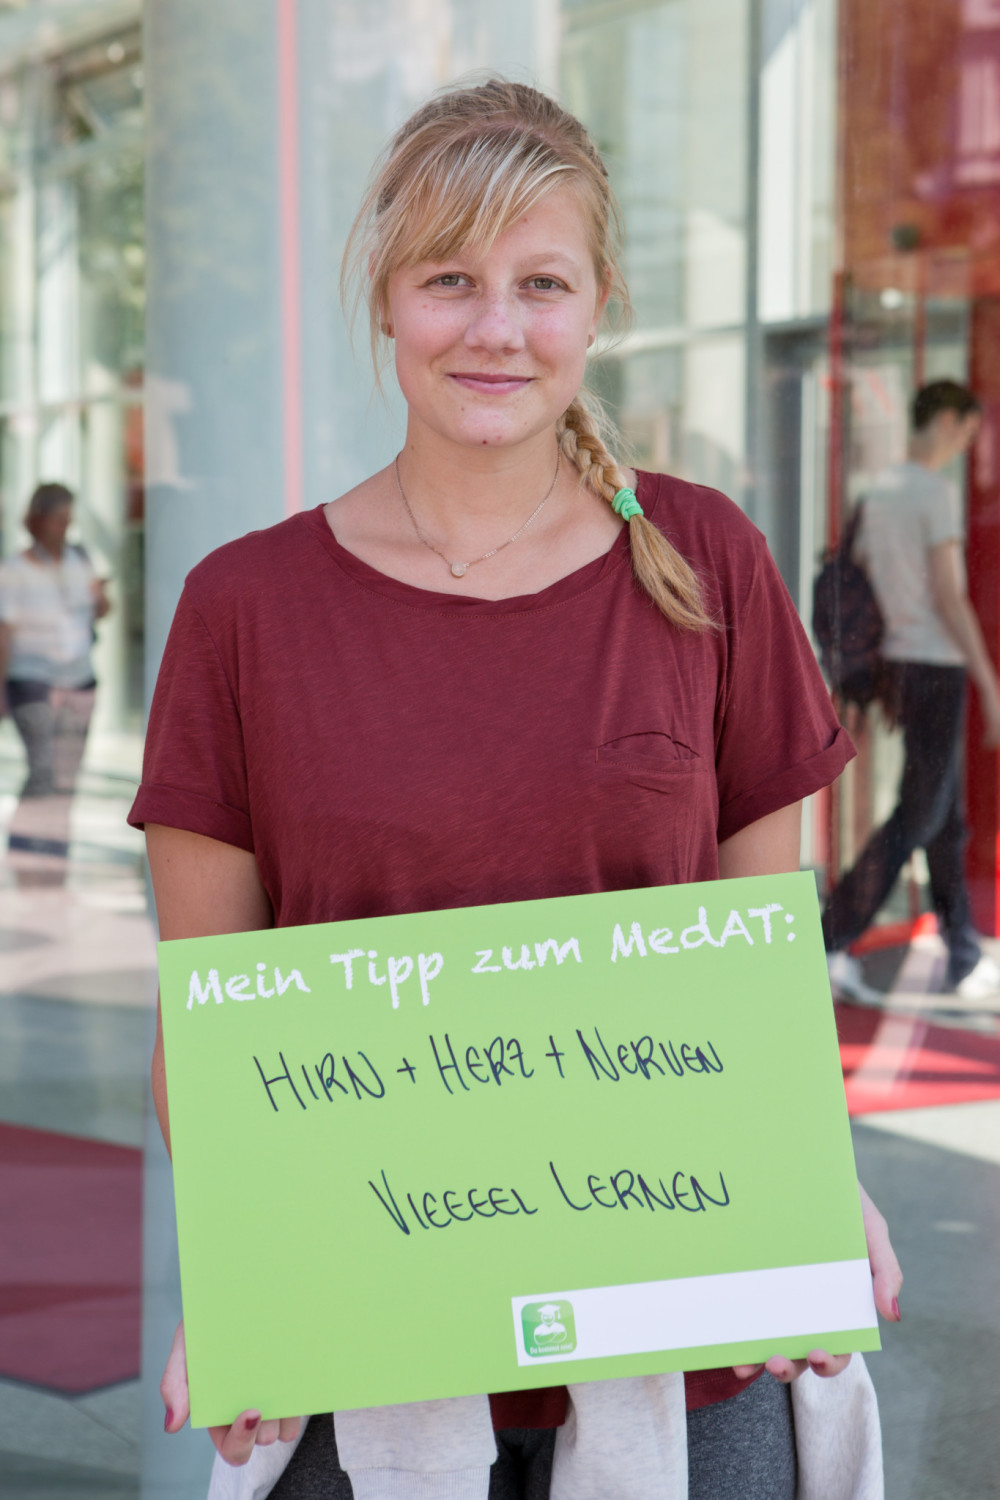 Mein Tipp zum MedAT:
HIRN + HERZ + NERVEN
VIEEEEL LERNEN